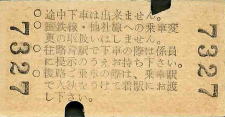 7327
○途中下車は出来ません。
○国鉄線・他社線への乗車変
更の取扱いはしません。
○往路着駅で下車の際は係員
に提示のうえお持ち下さい。
○復路ご乗車の際は、乗車駅
で入鋏をうけて着駅にお渡
し下さい。
7327